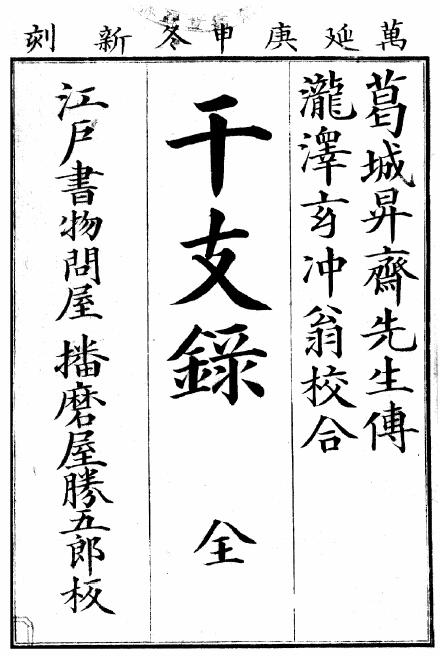 萬延庚申冬新刻
葛城昇齋先生傳
瀧澤玄冲翁校合
干支錄 全
江戸書物問屋 播磨屋勝五郎板